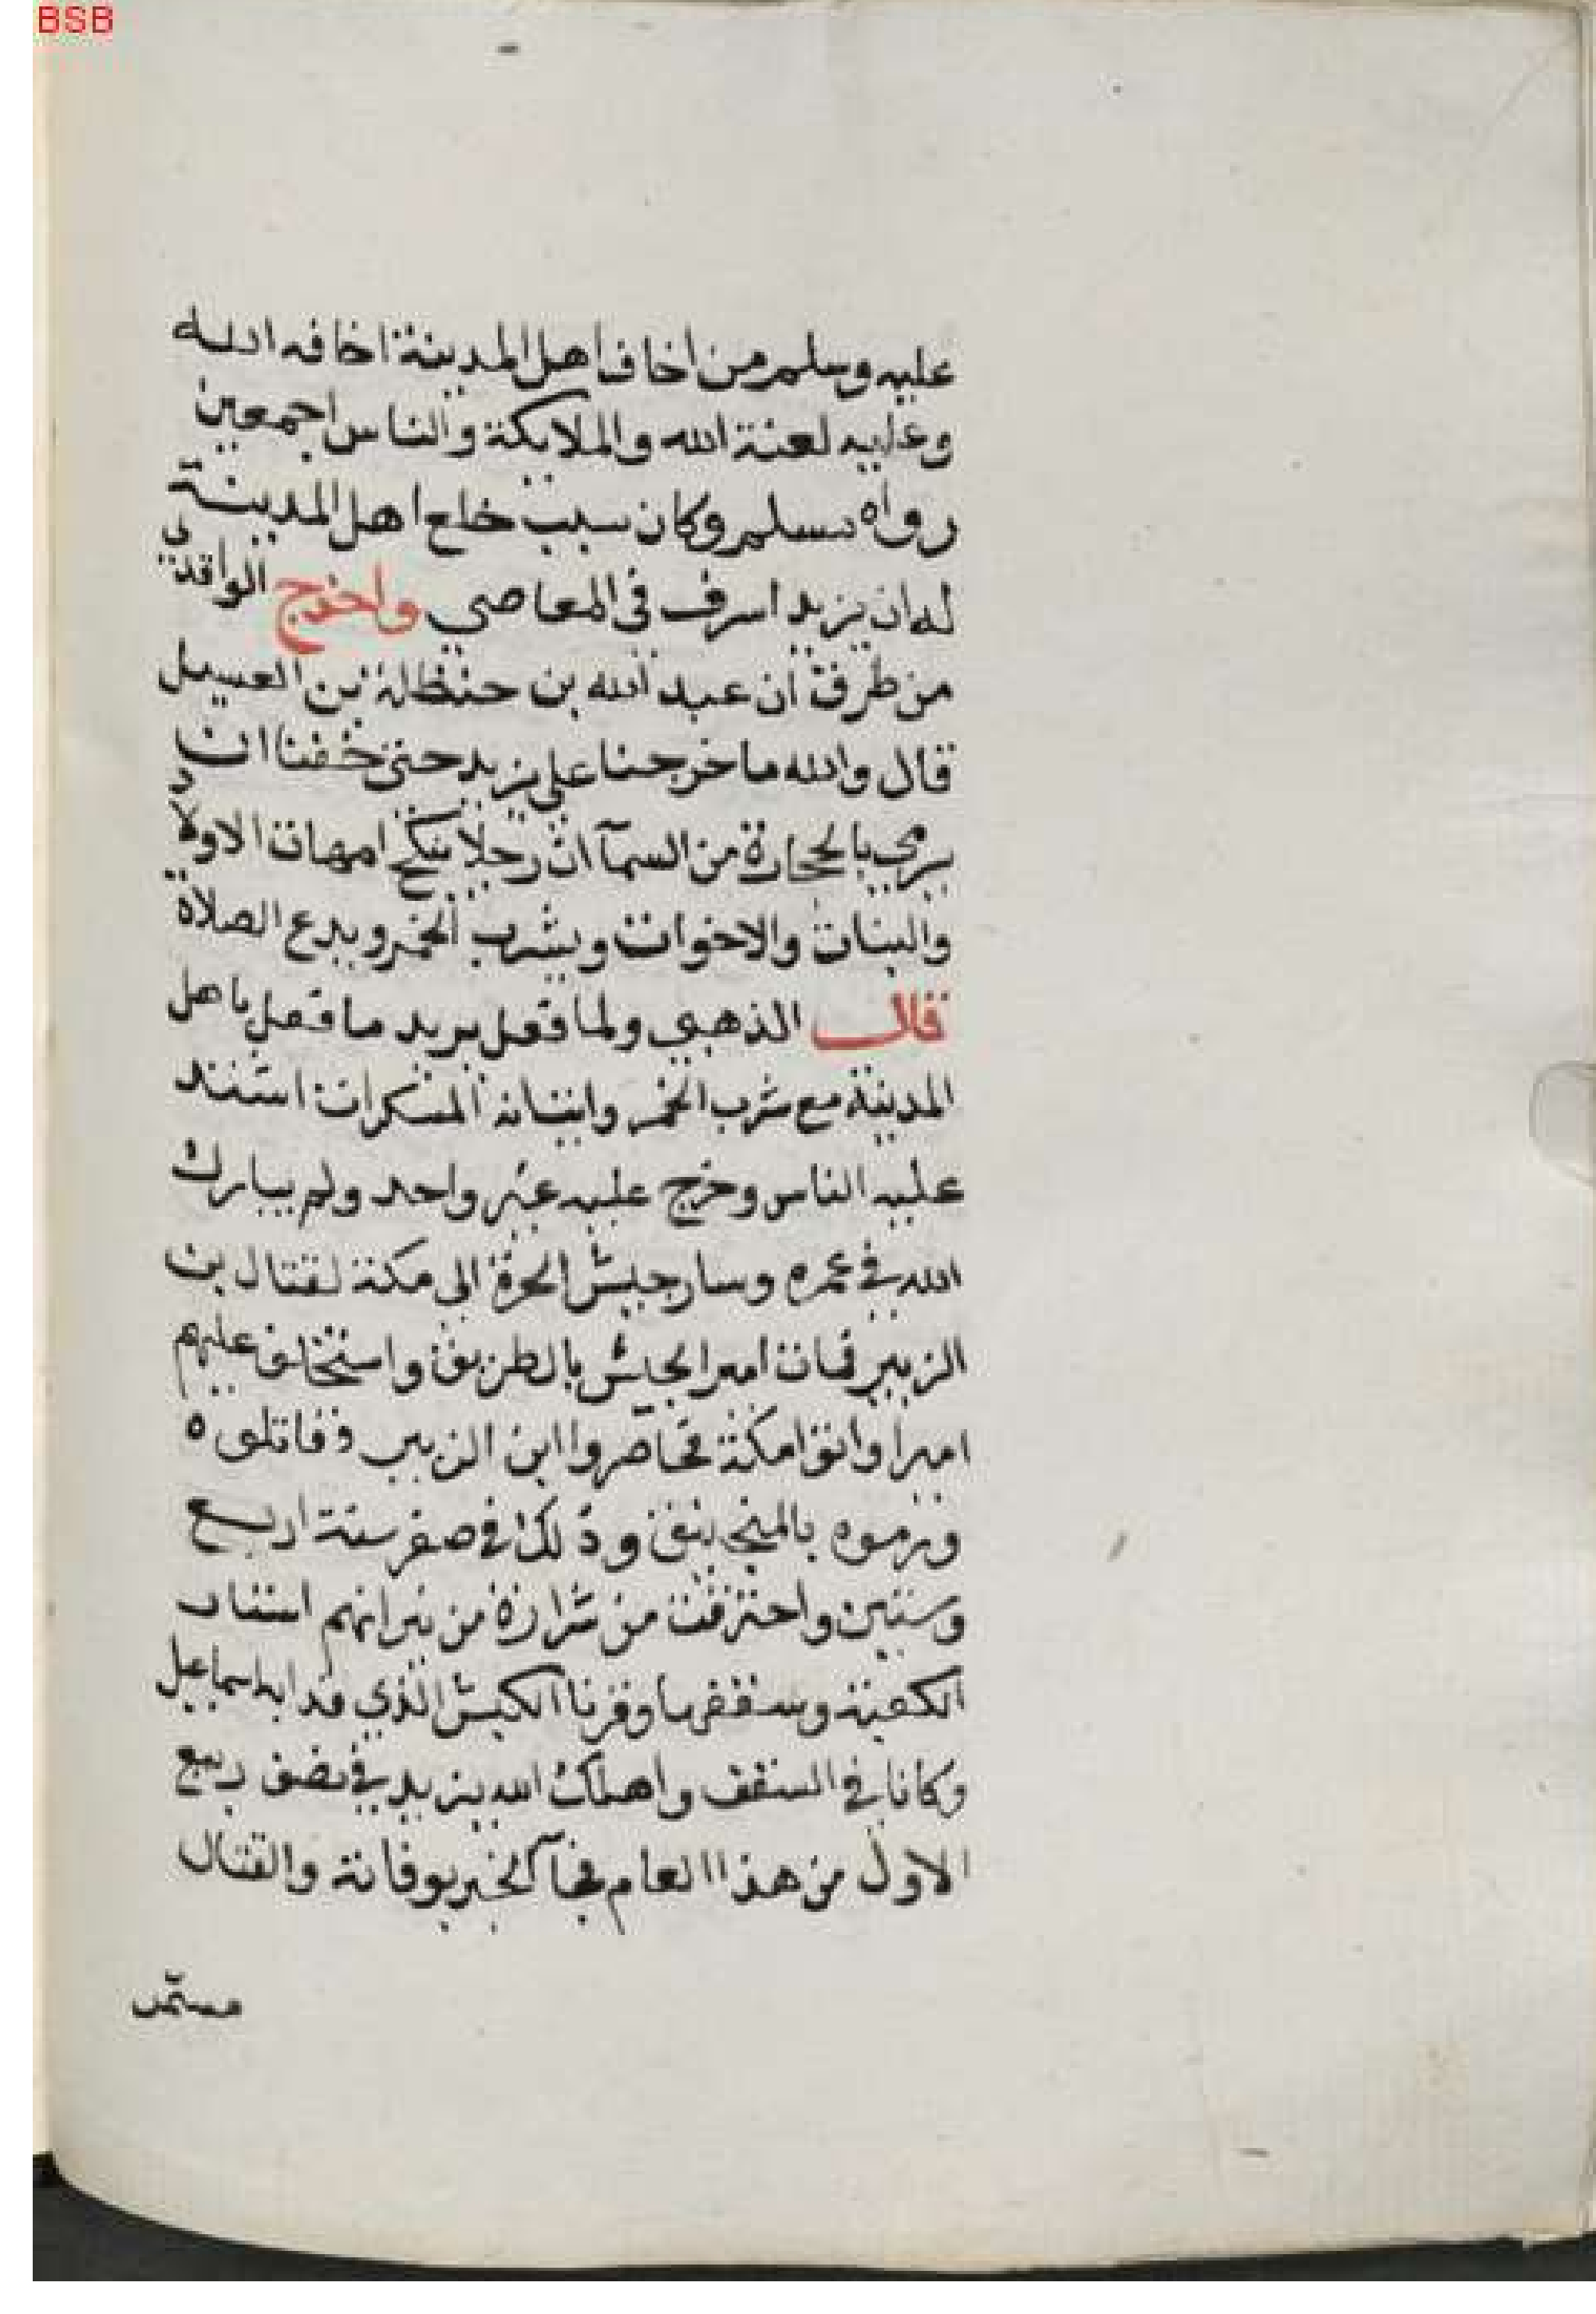 BSB
عليه وسلم من اخاف اهل المدينة اخافه الله
وعليه لعنة الله والملايكة والناس اجمعين
رواه مسلم وكان سبب خلع اهل المدينة
له ان يزيد اسرف في المعاصي واخرج الواقدي
من طرق ان عبد الله بن حنظلة بن الغسيل
قال والله ما خرجنا على يزيد حتى خفنا ان
نرمي بالحجارة من السمآ ان رجلا ينكح امهات الاولاد
والبنات والاخوات ويشرب الخمر ويدع الصلاة
قال الذهبي ولما فعل يزيد ما فعل باهل
المدينة مع شرب الخمر واتيانه المنكرات اشتد
عليه الناس وخرج عليه غير واحد ولم يبارك
الله في عمره وسار جيش الحرة الى مكة لقتال بن
الزبير فمات امير الجيش بالطريق واستخلف عليهم
اميرا واتوا مكة فحاصروا ابن الزبير وقاتلوه
ورموه بالمنجنيق وذلك في صفر سنة اربع
وستين واحترقت من شرارة من نيرانهم استار
الكعبة وسقفها وقرنا الكبش الذي فدا به اسماعيل
وكانا في السقف واهلك الله يزيد في نصف ربيع
الاول من هذا العام فجآ الخبر بوفاته والقتال
مستمر